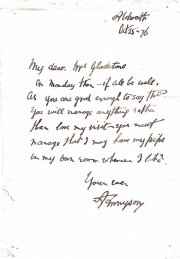 Aldworth
Oct 25 - 76
My dear Mrs Gladstone
On Monday then - if all be well.
As you are good enough to say that
you will manage anything rather
than lose my visit - you must
manage that I may have my pipe
in my own room whenever I like.
Yours ever
A Tennyson